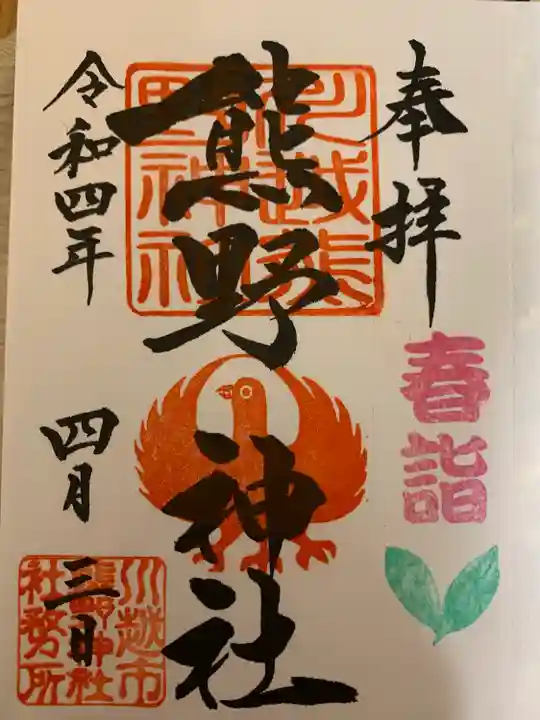 奉拝
春詣
川越熊野神社
熊野神社
令和四年
四月三日
川越市
熊野神社
社務所